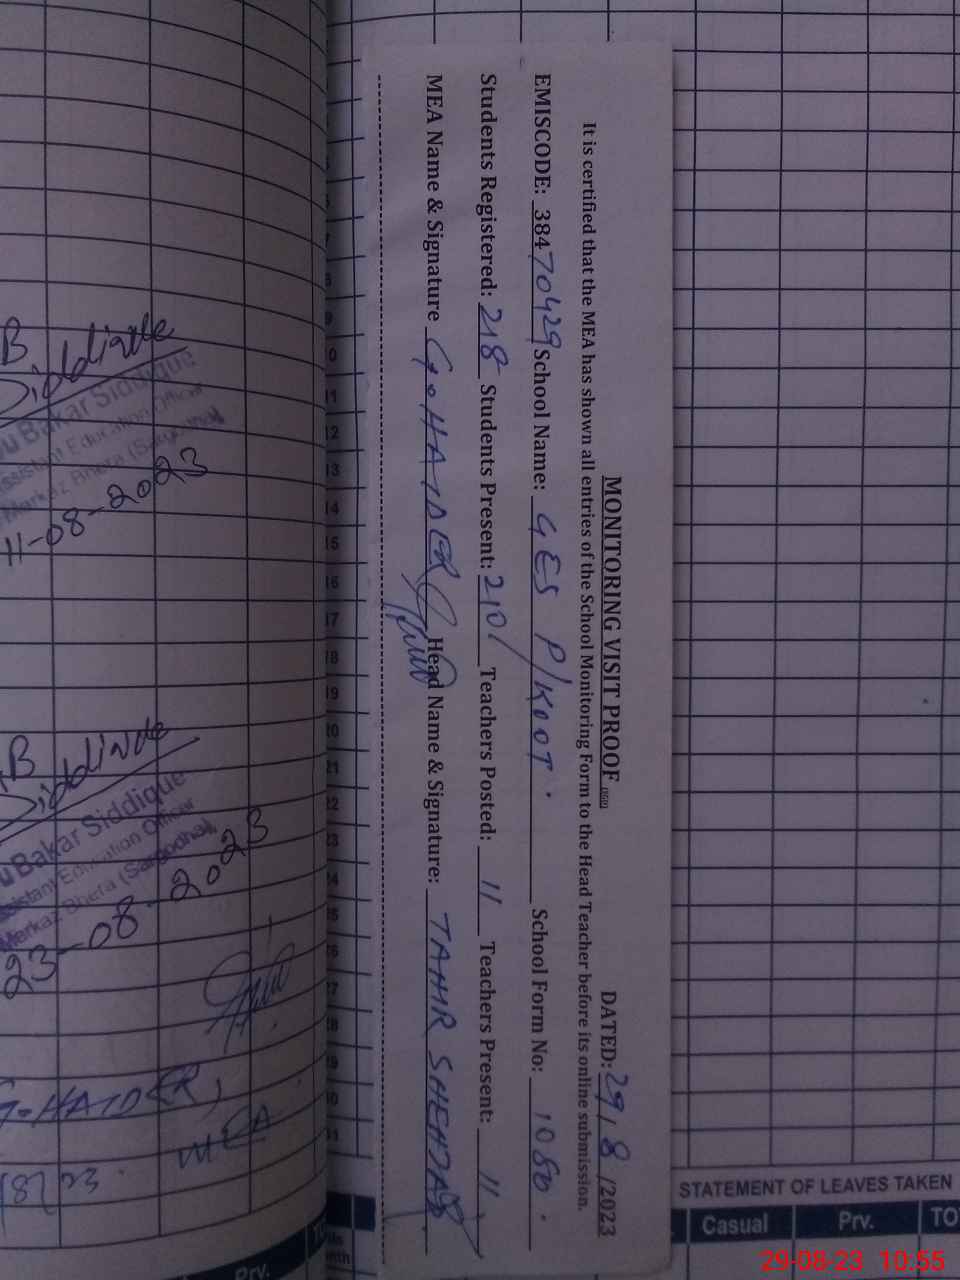 MONITORING VISIT PROOF DATED: 29/8/2023
It is certified that the MEA has shown all entries of the School Monitoring Form to the Head Teacher before its online submission.
EMISCODE: 38470429 School Name: GES P/KOOT. School Form No: 1080.
Students Registered: 218 Students Present: 210 Teachers Posted: 11 Teachers Present: 11
MEA Name & Signature G. HAIDER Head Name & Signature: TAHIR SHEHZAD
B
Siddique
u Bakar Siddique
ssistant Education Officer
Markaz Bhera (Sargodha)
11-08-2023
AB
Siddique
u Bakar Siddique
ssistant Education Officer
Merkaz Bhera (Sargodha)
23-08-2023
G-HAIDER,
MEA
/8/23
9
10
11
12
13
14
15
16
17
18
19
20
21
22
23
24
25
26
27
28
29
30
31
STATEMENT OF LEAVES TAKEN
Casual Prv. TO
Prv.
29-08-23 10:55